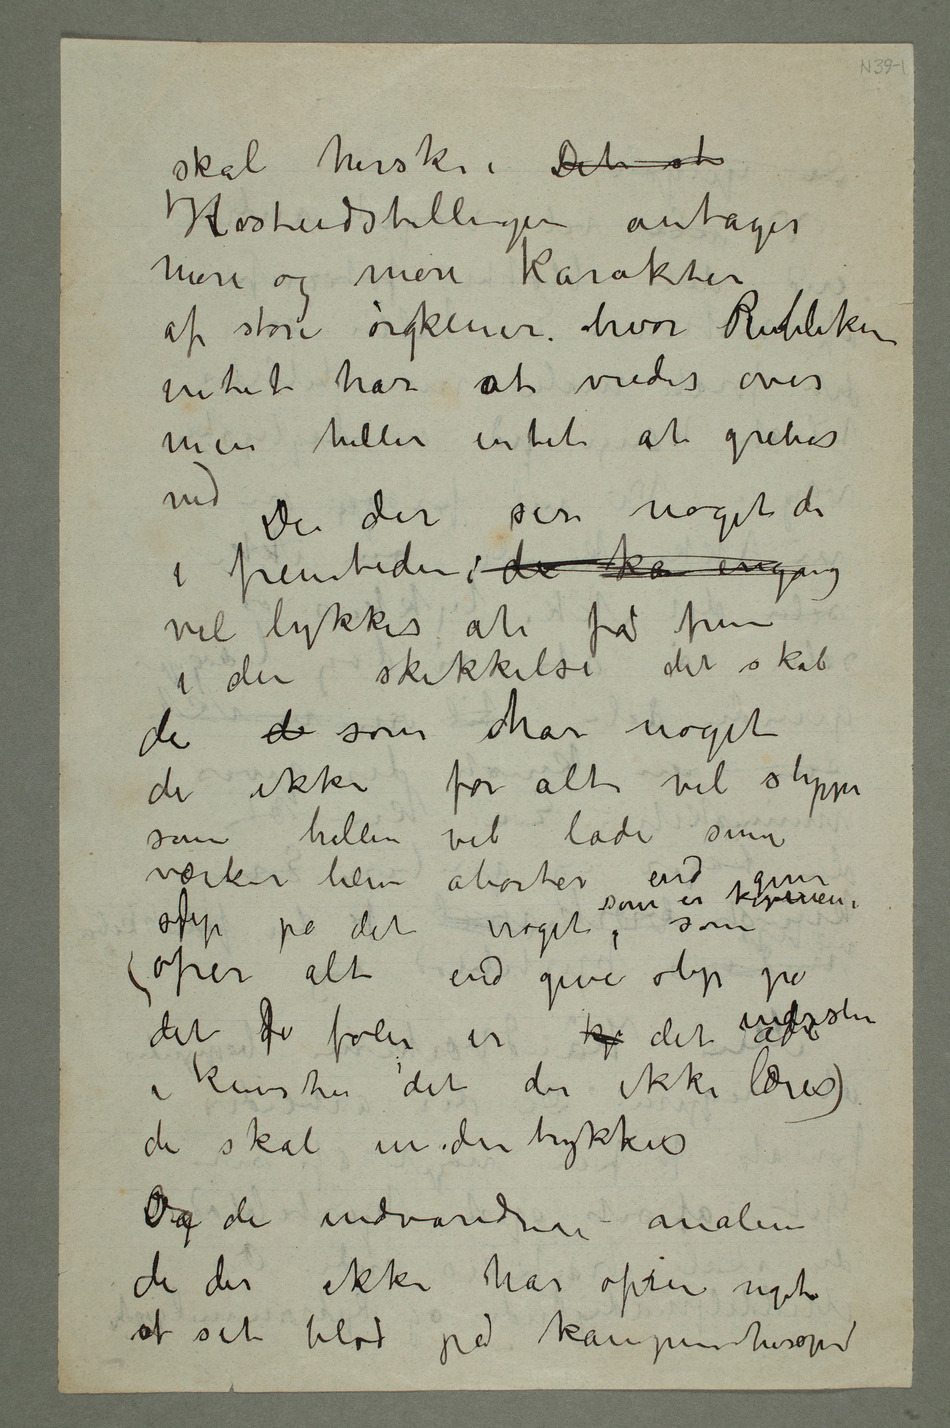 N39-1
skal herske i Det st
Høstudstillingen antages
mere og mere Karakter
af store ørkener. hvor Publiken
intet har at vredes over
men heller intet at gribes
ved
De der ser noget de
i fremtiden; de ka engang
vil lykkes at få frem
i den skikkelse det skal
de de som har noget
de ikke for alt vil slippe
som heller vil lade sine
værker blive aborter end give
slip på det noget, som
som er kommen,
(ofrer alt end give slip på
det de føler er det
inderste
i kunsten det der ikke læres)
de skal undertrykkes
Og de indvandrene malere
de der ikke har ofret noget
sit blod på kampen herop